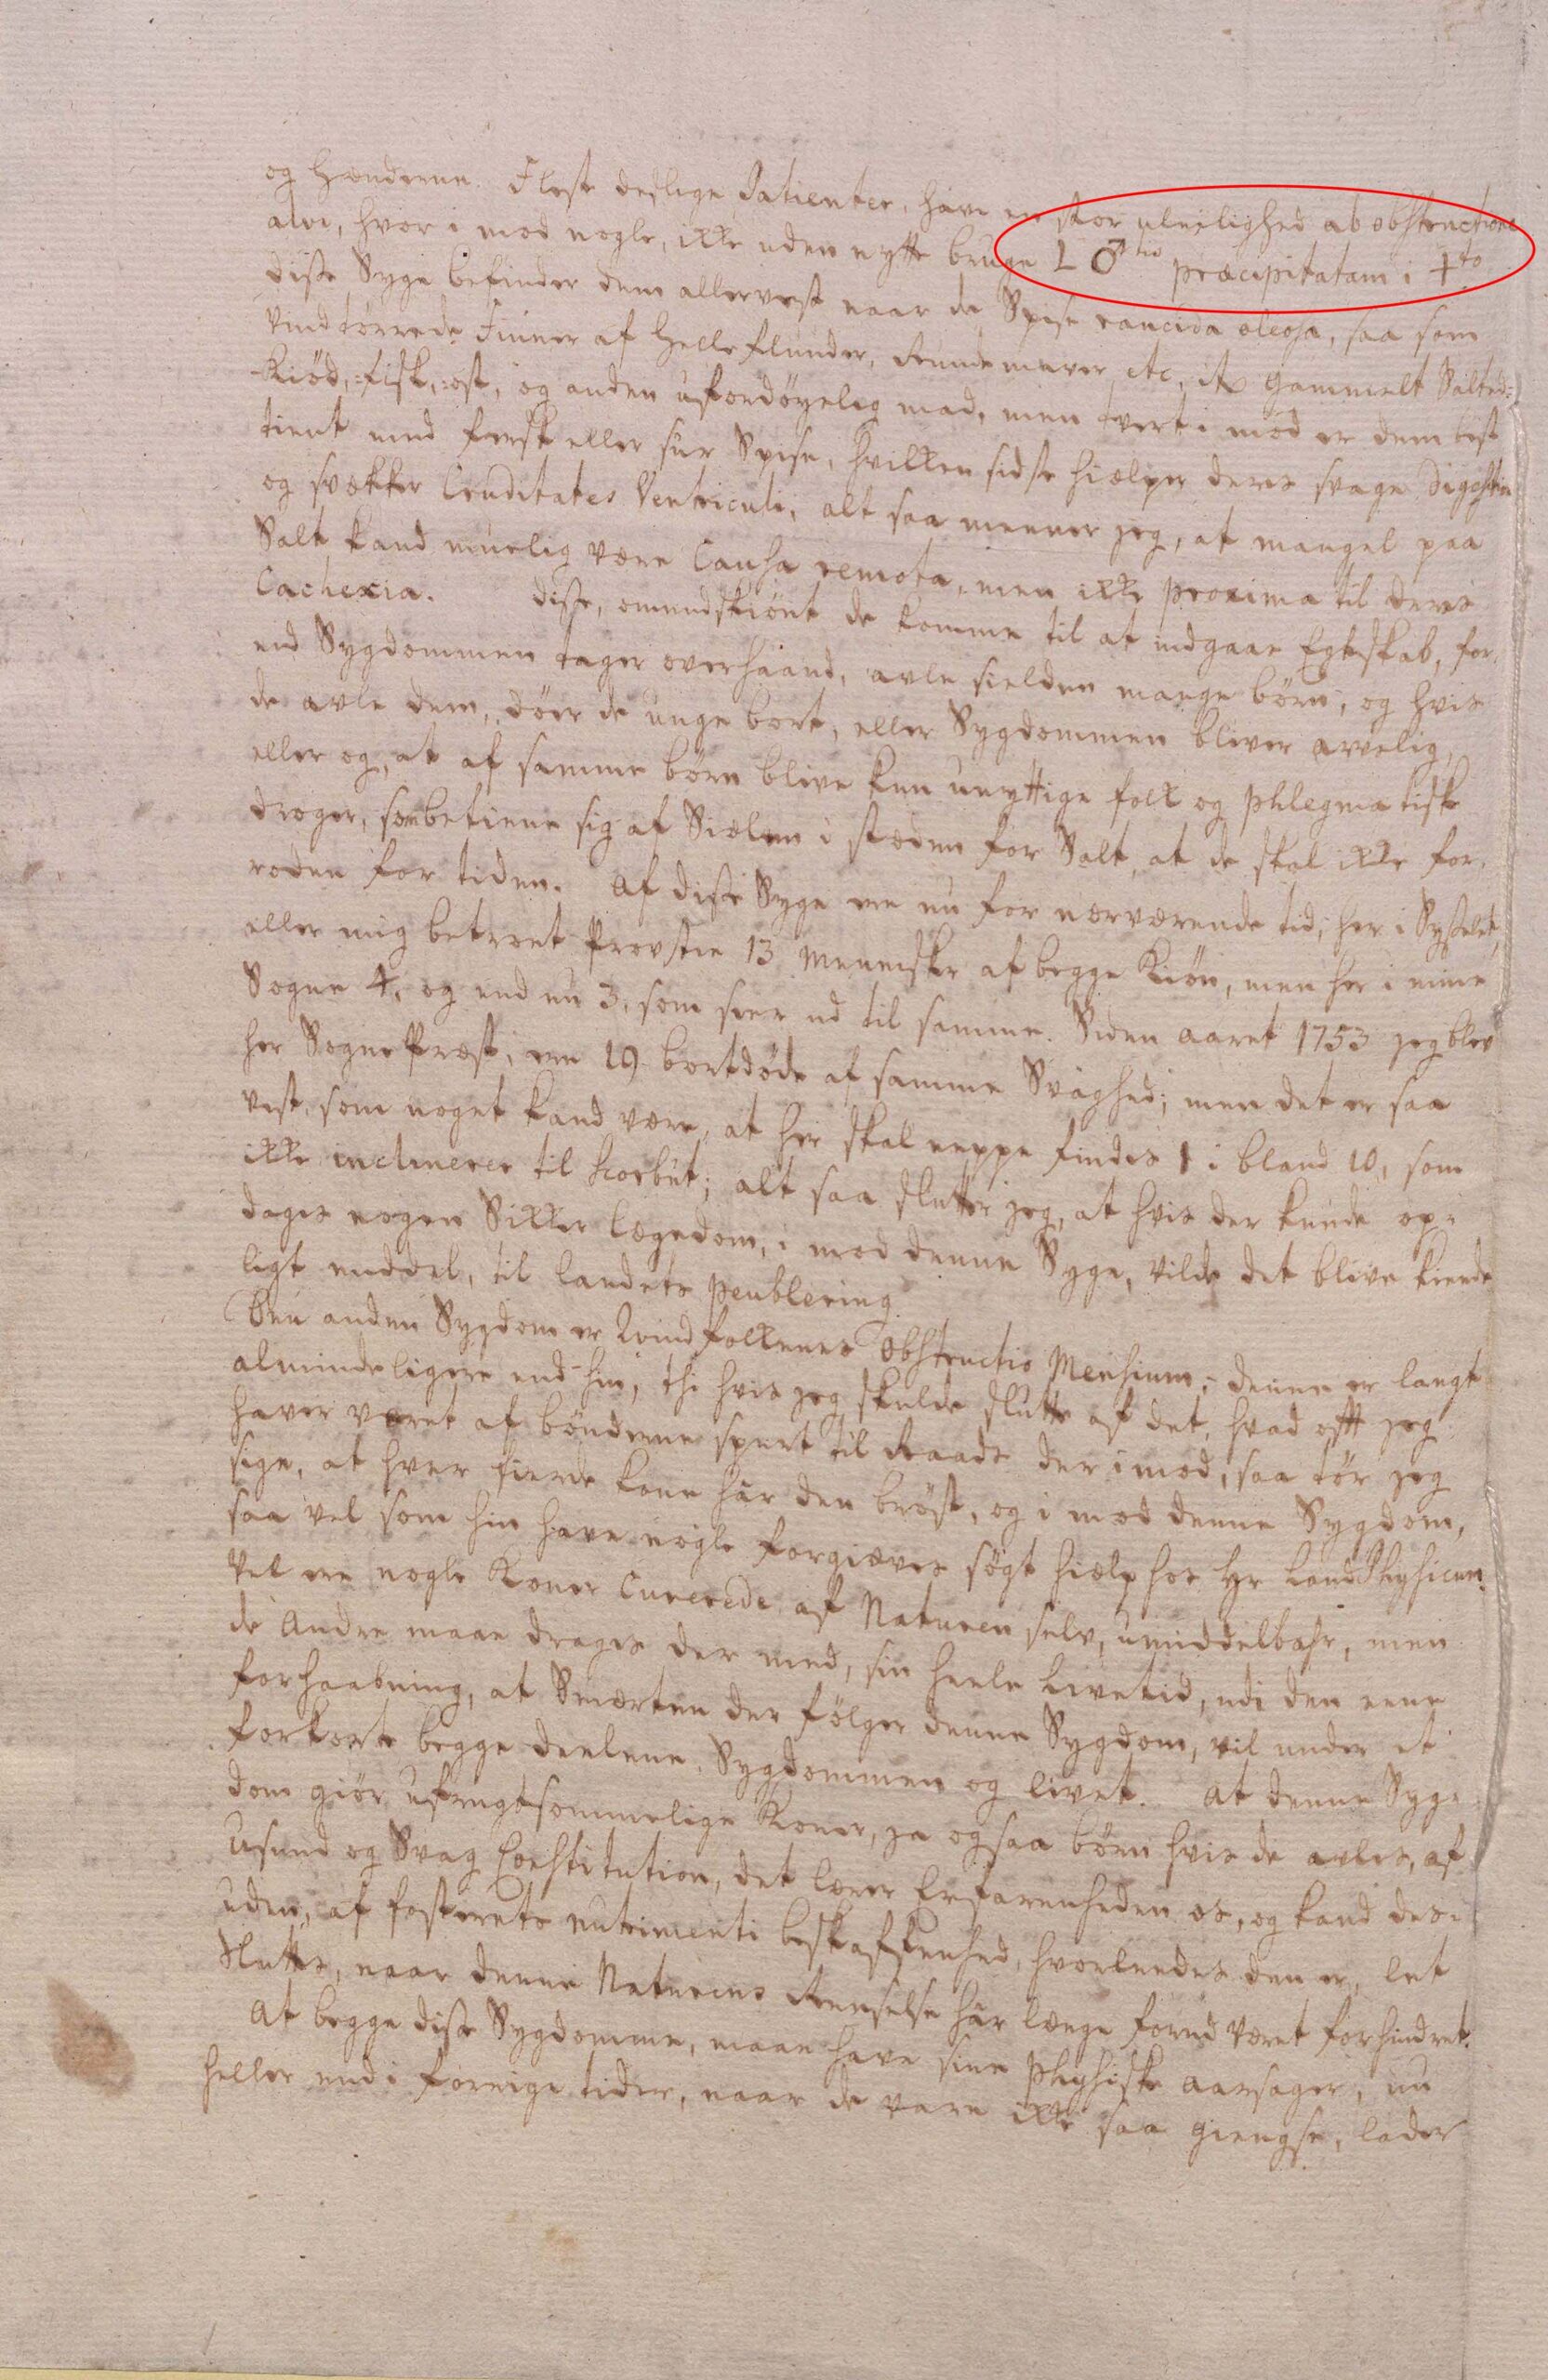 og Hænderne. Flest deslige Patienter, have en stor uleilighed ab obstructione
alvi, hvor i mod nogle, ikke uden nytte bruge L ♂tis præcipitatam i +to
disse Syge befinder dem allerverst naar de Spise rancida oleosa, saa som
Vindtørrede Finner af Helleflunder, Runde maver, etc, it gammelt Salted-
Kiød, -fisk, -ost, og anden ufordøyelig mad, men tvert i mod er dem best
tient med fersk eller sur Spise, hvilken sidste hielper deres svage Digestion
og svækker Cruditates Ventriculi, alt saa meener jeg, at mangel paa
Salt kand muelig være Causa remota, men ikke proxima til deres
Cachexia. disse, omendskiønt de komme til at indgaae Egteskab, for-
end Sygdommen tager overhaand, avle sielden mange børn, og hvis
de avle dem, døer de unge bort, eller Sygdommen bliver arvelig,
eller og, at af samme børn blive kun unyttige folk og phlegmatiske
droger, som betiene sig af Siælen i stæden for Salt, at de skal ikke for-
raadne for tiden. Af disse Syge ere nu for nærværende tid, her i Sysselet,
eller mig betroet Provstie 13 Mennisker af begge Kiøn, men her i mine
Sogne 4, og end nu 3, som seer ud til samme. Siden aaret 1753 jeg blev
her SognePræst, ere 19 bortdøde af samme Svaghed; men det er saa
vist, som noget kand være, at her skal neppe findes 1 i bland 10, som
ikke inclinerer til scorbut; alt saa slutter jeg, at hvis der kunde op-
dages nogen Sikker Lægedom, i mod denne Syge, vilde det blive kiende-
ligt middel, til landets peublering.
Den anden Sygdom er Qvindfolkenes Obstructio Mensium; denne er langt
almindeligere end hin, thi hvis jeg skulde slutte af det, hvad ofte jeg
haver været af bønderne spurt til Raads der imod, saa tør jeg
sige, at hver fierde kone har den brøst, og i mod denne Sygdom,
saa vel som hin have nogle forgiæves søgt hielp hos Hr LandPhysicum.
Vel ere nogle Koner Curerede af Naturen selv, umiddelbahr, men
de Andre maae drages der med, sin heele Livetid, udi den eene
forhaabning, at Smærten der følger denne Sygdom, vil under et
forkorte begge deelene, Sygdommen og livet. At denne Syge-
dom giør ufrugtsommelige Koner, ja ogsaa børn hvis de avles, af
Usund og Svag Constitution, det lærer Erfarenheden os, og kand des-
uden, af fosterets nutrimenti beskaffenhed, hvorledes den er, let
sluttes, naar denne Naturens Renselse har længe forud været forhindret.
At begge disse Sygdomme, maae have sine physiske aarsager, nu
heller end i forrige tider, naar de vare ikke saa giengse, lader